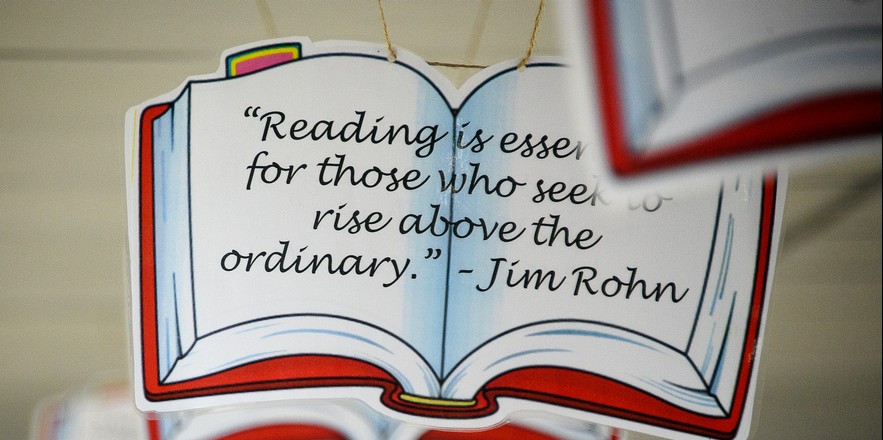 “Reading is
for those who seek to
rise above the
ordinary.” - Jim Rohn